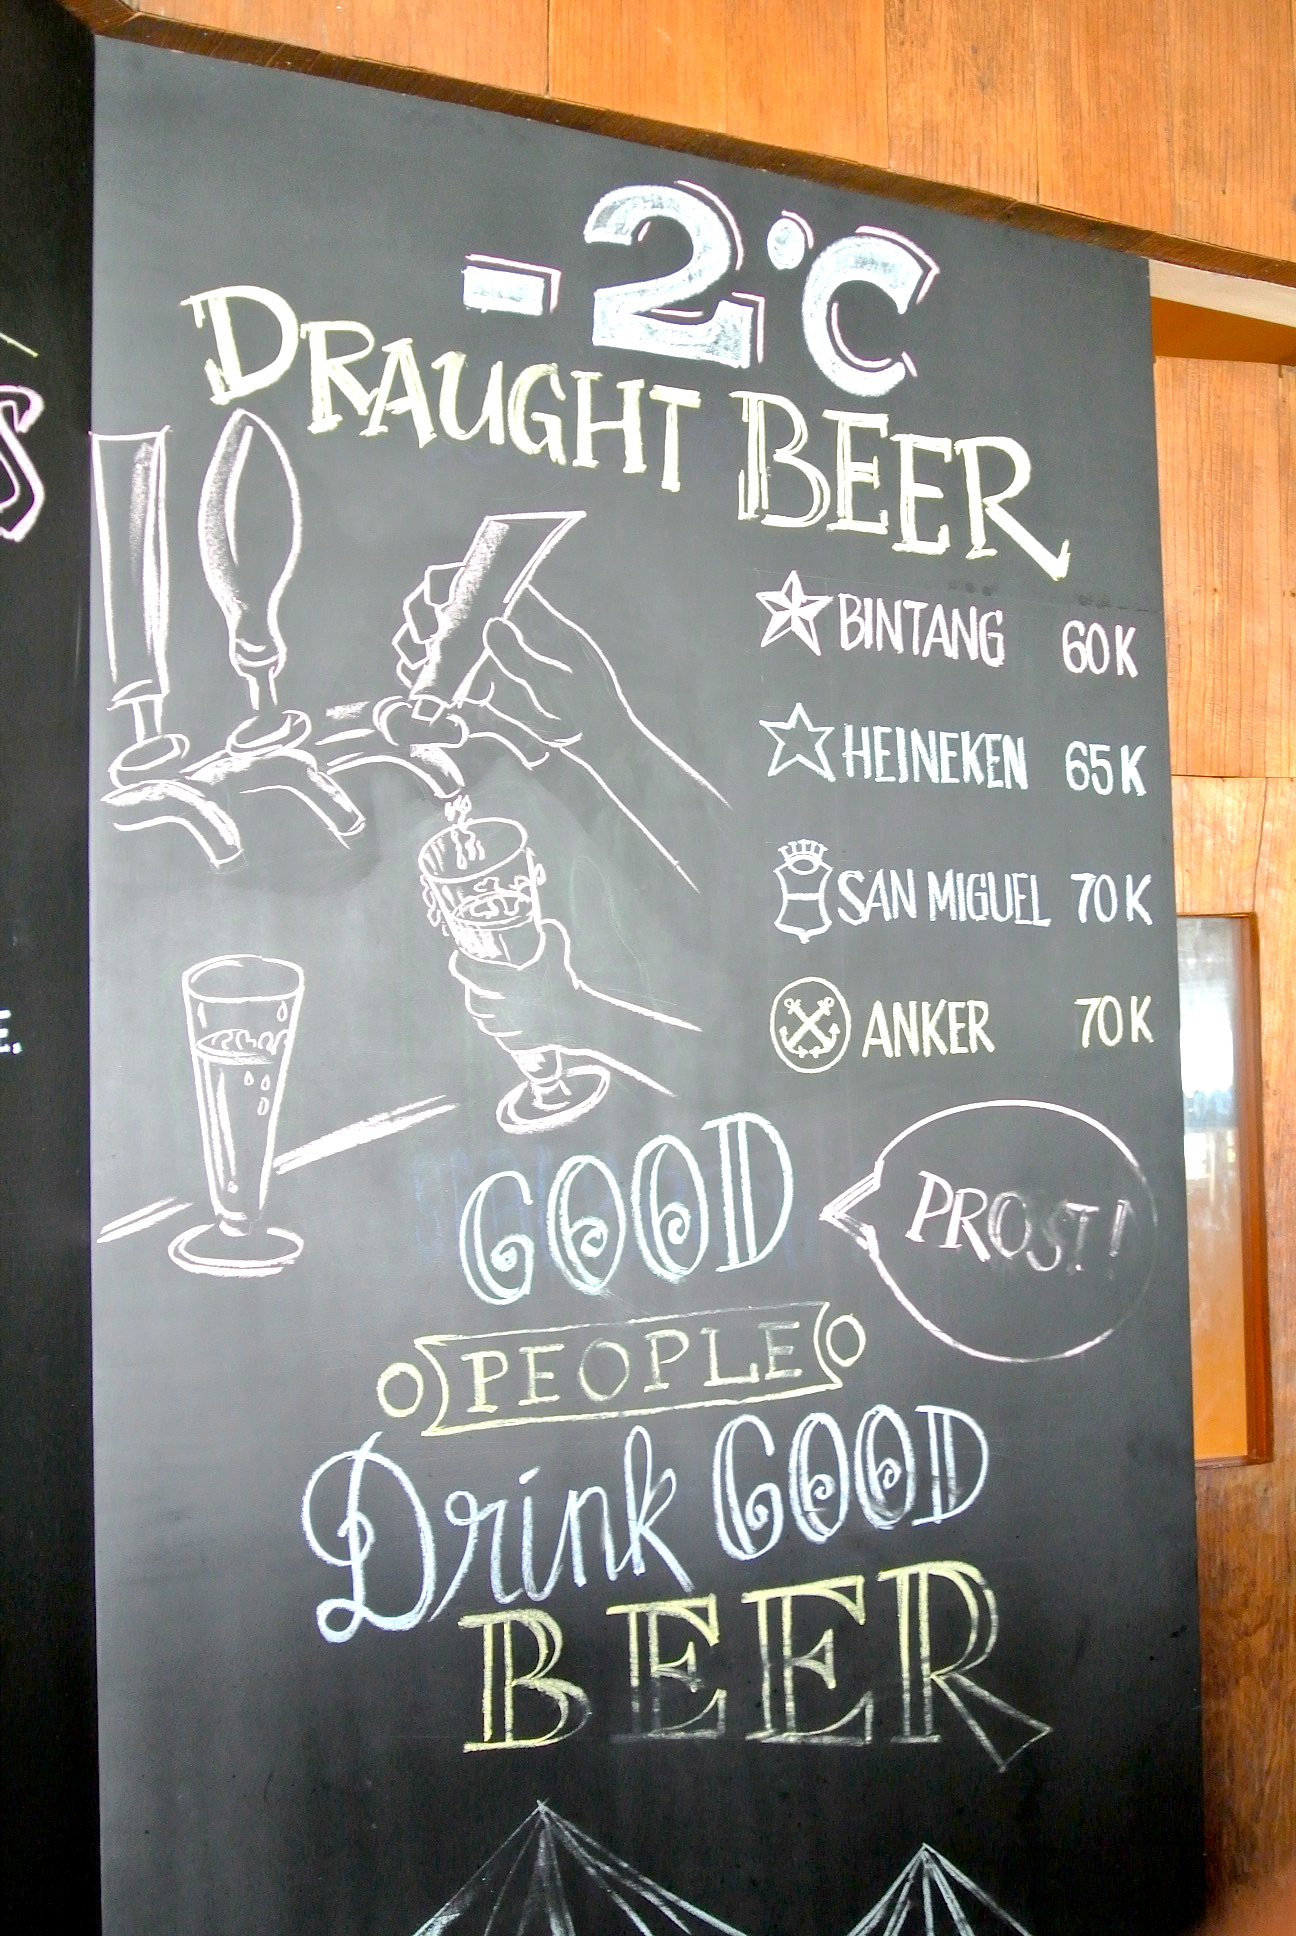 -2°C
DRAUGHT BEER
BINTANG 60K
HEINEKEN 65K
SAN MIGUEL 70K
ANKER 70K
PROST!
GOOD
PEOPLE
Drink GOOD
BEER
S
E.